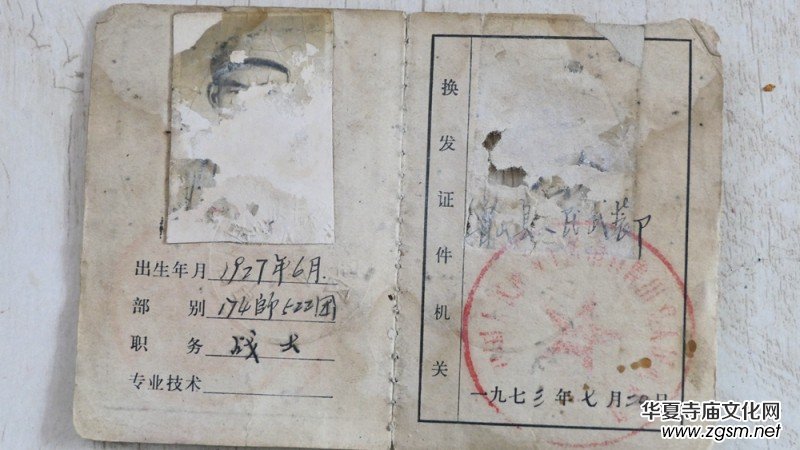 出生年月 1927年6月.
部 别 174師522团
职 务 战士
专业技术
换发证件机关
县人民武装部
一九七三年七月二〇日
华夏寺庙文化网
www.zgsm.net